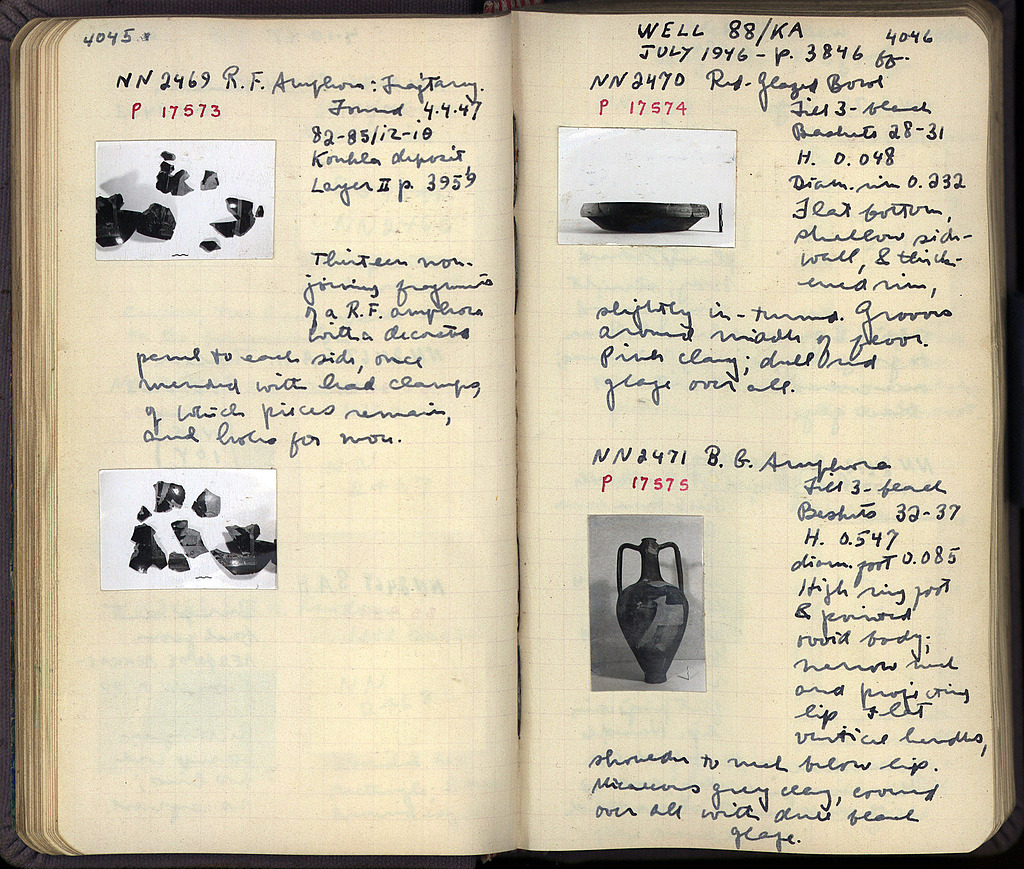 4045
NN 2469 R.F. Amphora: Fragtary.
P 17573
Found 4.4.47
82-85/12-18
Koukla deposit
Layer II p. 3959
Thirteen non-
joining fragments
of a R.F. amphora
with a decrtd
panel to each side, once
mended with lead clamps,
of which pieces remain,
and holes for more.
WELL 88/KA
4046
JULY 1946 - p. 3846 ff.
NN 2470 Red-Glazed Bowl
P 17574
Fill 3 - black
Baskets 28-31
H. 0.048
Diam. rim 0.232
Flat bottom,
shallow side-
wall, & thick-
ened rim,
slightly in-turned. Grooves
around middle of floor.
Pink clay; dull red
glaze over all.
NN 2471 B.G. Amphora
P 17575
Fill 3 - black
Baskets 32-37
H. 0.547
diam. foot 0.085
High ring foot
& pointed
ovoid body;
narrow neck
and projecting
lip. Flat
vertical handles,
shoulder to neck below lip.
Micaceous grey clay, covered
over all with dull black
glaze.